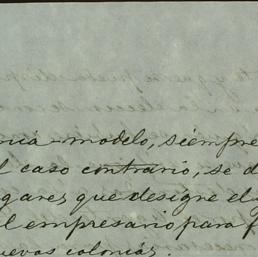 onia-modelo, siempre
l caso contrario, se d
gares que designe el
l empresario para f
uevas colonias.